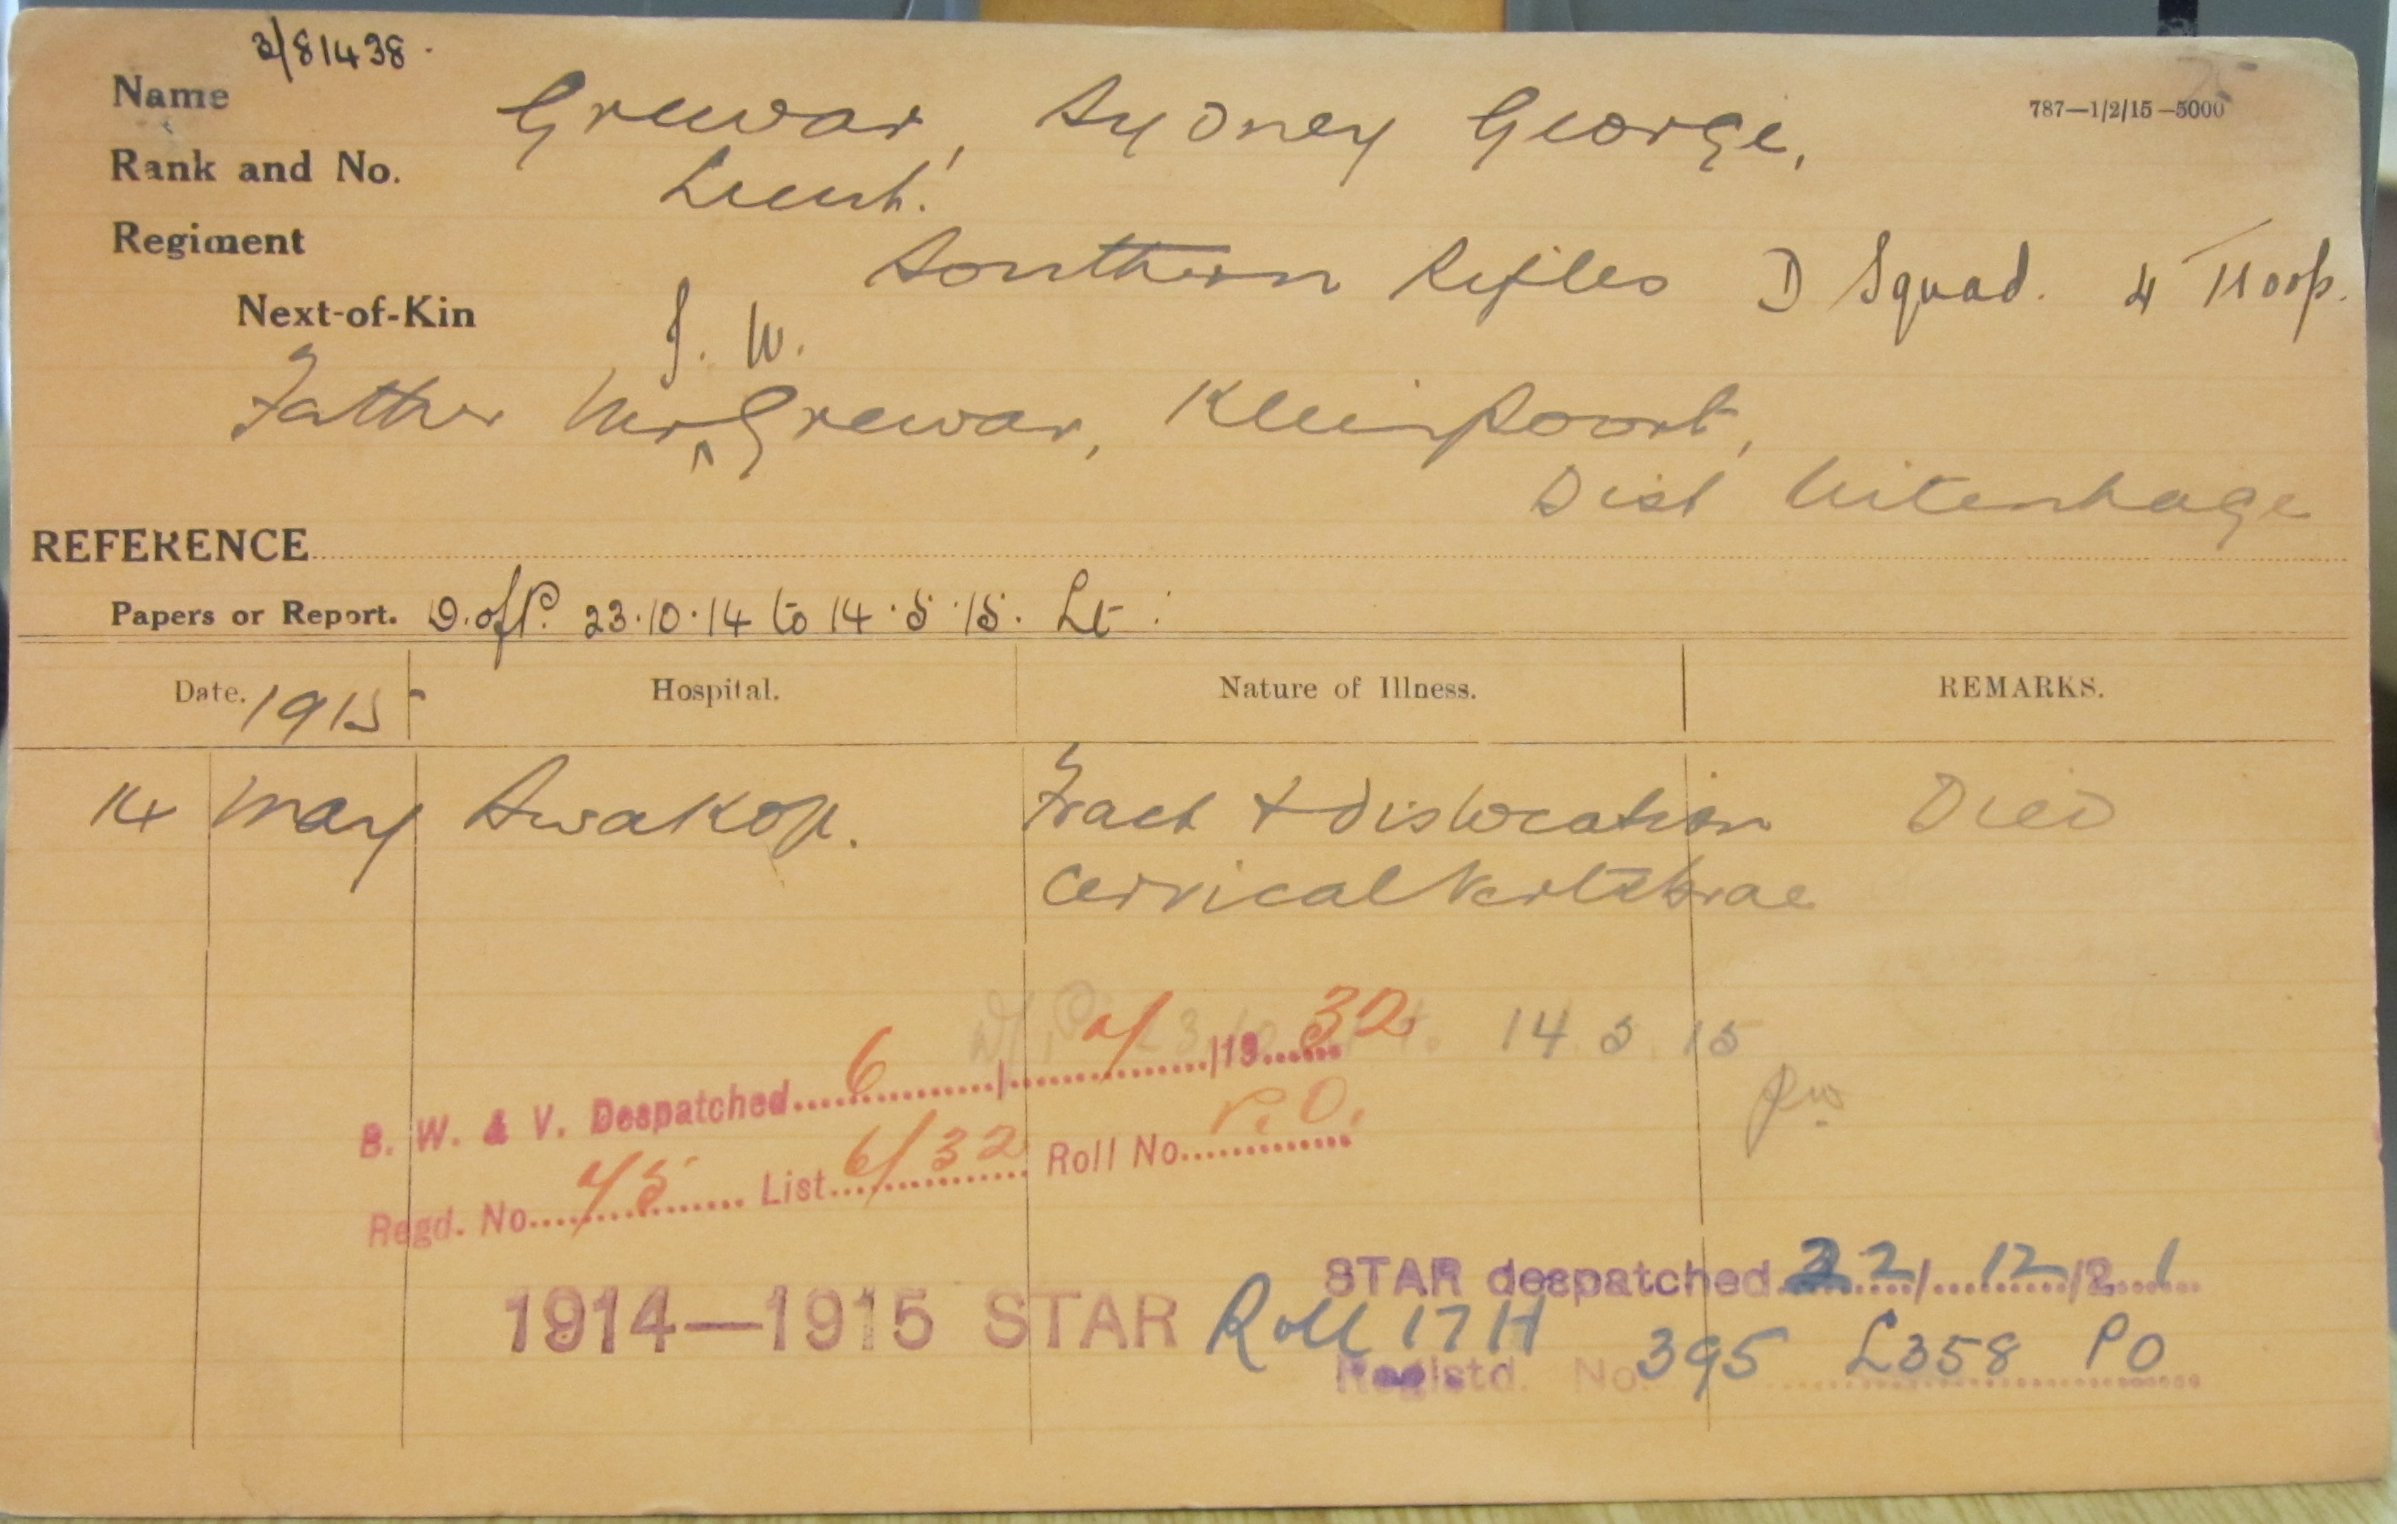 3/81438.
Name Grewar, Sydney George,
787—1/2/15—5000
Rank and No. Lieut.
Regiment Southern Rifles D Squad. 4 Troop.
Next-of-Kin J. W.
Father Mr ^ Grewar, Kleinpoort,
Dist Uitenhage
REFERENCE
Papers or Report. D. of P. 23.10.14 to 14.5.15. Lt.
Date. 1915 Hospital. Nature of Illness. REMARKS.
14 May Swakop. Fract & dislocation Died
Cervical Vertebrae
14 5 15
B. W. & V. Despatched 6/4/1932
Regd. No. 45 List 6/32 Roll No. P.O.
STAR despatched 22/12/21
1914—1915 STAR Roll 17 H
Registd. No. 395 L358 PO